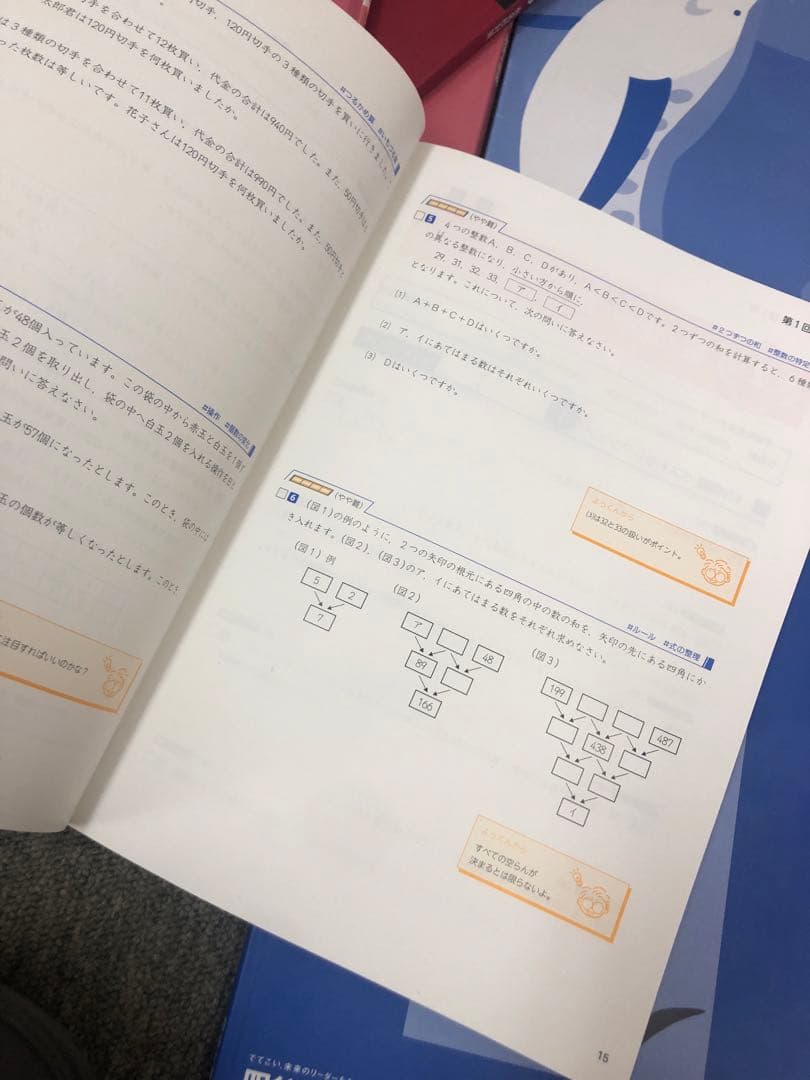 切手, 120円切手の3種類の切手を買いに行きました。
手を合わせて12枚買い, 代金の合計は940円でした。また, 50円切手
太郎君は120円切手を何枚買いましたか。
は3種類の切手を合わせて11枚買い, 代金の合計は990円でした。また, 50円切手
った枚数は等しいです。花子さんは120円切手を何枚買いましたか。
#操作 #個数の変化
が48個入っています。この袋の中から赤玉と白玉を1個ず
玉2個を取り出し, 袋の中へ白玉2個を入れる操作を
問いに答えなさい。
玉が57個になったとします。このとき, 袋の中には
玉の個数が等しくなったとします。このとき
注目すればいいのかな?
第1回
#2つずつの和 #整数の特定
(やや難)
5 4つの整数A, B, C, Dがあり, A<B<C<Dです。2つずつの和を計算すると, 6種
の異なる整数になり, 小さい方から順に,
29, 31, 32, 33, ア, イ
となります。これについて, 次の問いに答えなさい。
(1) A+B+C+Dはいくつですか。
(2) ア, イにあてはまる数はそれぞれいくつですか。
(3) Dはいくつですか。
(3)は32と33の扱いがポイント。
#ルール #式の整理
(やや難)
6 (図1)の例のように, 2つの矢印の根元にある四角の中の数の和を, 矢印の先にある四角にか
き入れます。(図2), (図3)のア, イにあてはまる数をそれぞれ求めなさい。
(図1) 例
5 2
7
(図2)
ア 48
89
166
(図3)
199 487
438
イ
すべての空らんが
決まるとは限らないよ。
15
でてこい、未来のリーダー